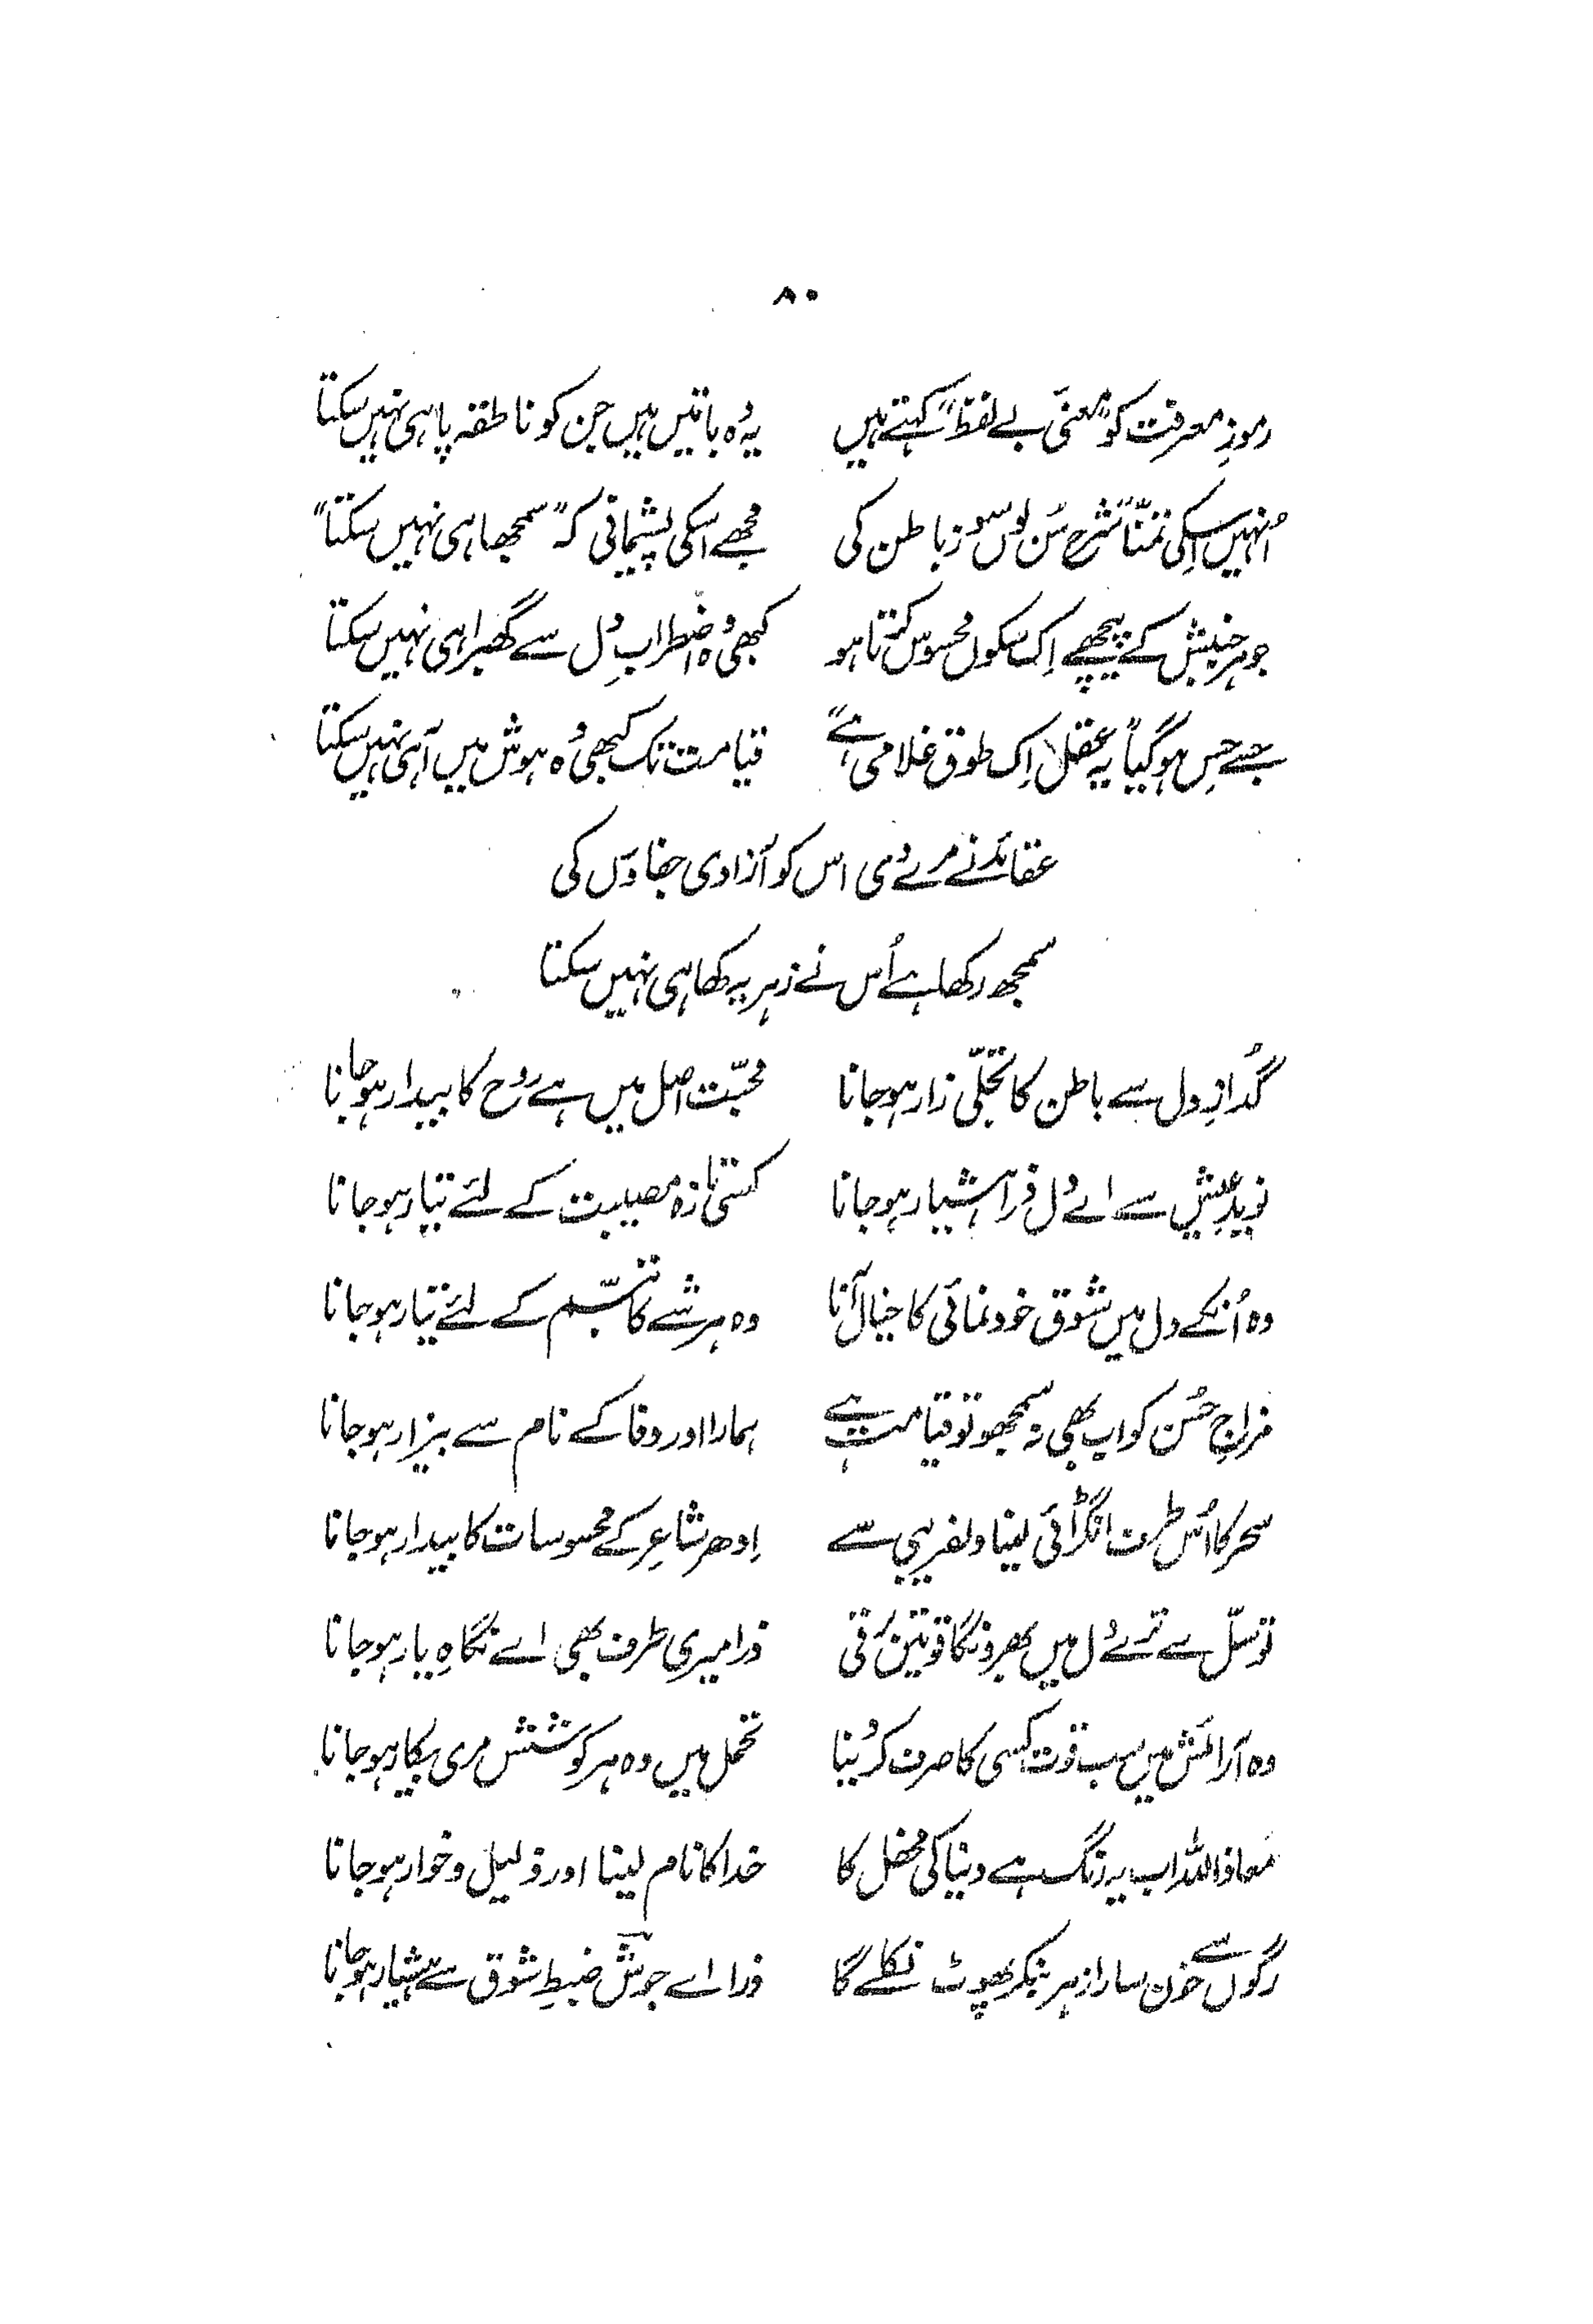 ۸۰
رموزِ معرفت کو "معنیِ بے لفظ" کہتے ہیں یہ وُہ باتیں ہیں جن کو ناطقہ پا ہی نہیں سکتا
اُنہیں اِسکی تمنّا "شرح سُن لوں سوزِ باطن کی مجھے اسکی پشیمانی کہ "سمجھا ہی نہیں سکتا"
جو ہر جنبش کے پیچھے اِک سکوں محسوس کرتا ہو کبھی وُہ اضطرابِ دِل سے گھبرا ہی نہیں سکتا
جسے حِس ہو گیا "یہ عقل اِک طوقِ غلامی ہے" قیامت تک کبھی وُہ ہوش میں آ ہی نہیں سکتا
عقائد نے مرے دی اس کو آزادی جفاؤں کی
سمجھ رکھا ہے اُس نے زہر یہ کھا ہی نہیں سکتا
گُدازِ دل سے باطن کا تجلّی زار ہو جانا محبّت اصل میں ہے رُوح کا بیدار ہو جانا
نویدِ عیش سے اے دِل ذرا ہشیار ہو جانا کسی تازہ مصیبت کے لئے تیار ہو جانا
وہ اُنکے دل میں شوقِ خودنمائی کا خیال آنا وہ ہر شے کا تبسّم کے لئے تیار ہو جانا
مزاجِ حُسن کو اب بھی نہ سمجھو تو قیامت ہے ہمارا اور وفا کے نام سے بیزار ہو جانا
سحر کا اُس طرف انگڑائی لینا دلفریبی سے اِدھر شاعِر کے محسوسات کا بیدار ہو جانا
توسّل سے ترے دِل میں بھرونگا قوتیں برقی ذرا میری طرف بھی اے نگاہِ یار ہو جانا
وہ آرائش میں سب قوت کسی کا صرف کر دینا تحمل میں وہ ہر کوشش مری بیکار ہو جانا
معاذ اللہ اب یہ رنگ ہے دنیا کی محفل کا خدا کا نام لینا اور ذلیل و خوار ہو جانا
رگوں سے خون سارا زہر بنکر پھوٹ نکلے گا ذرا اے جوشؔ ضبطِ شوق سے ہشیار ہو جانا